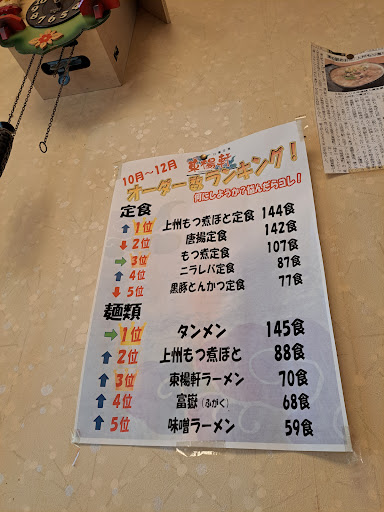 10月～12月 東楊軒
オーダー数ランキング！
何にしようか？悩んだらコレ！
定食
↑ 1位 上州もつ煮ほと定食 144食
↓ 2位 唐揚定食 142食
→ 3位 もつ煮定食 107食
↑ 4位 ニラレバ定食 87食
↓ 5位 黒豚とんかつ定食 77食
麺類
→ 1位 タンメン 145食
↑ 2位 上州もつ煮ほと 88食
↑ 3位 東楊軒ラーメン 70食
↑ 4位 富嶽（ふがく） 68食
↑ 5位 味噌ラーメン 59食